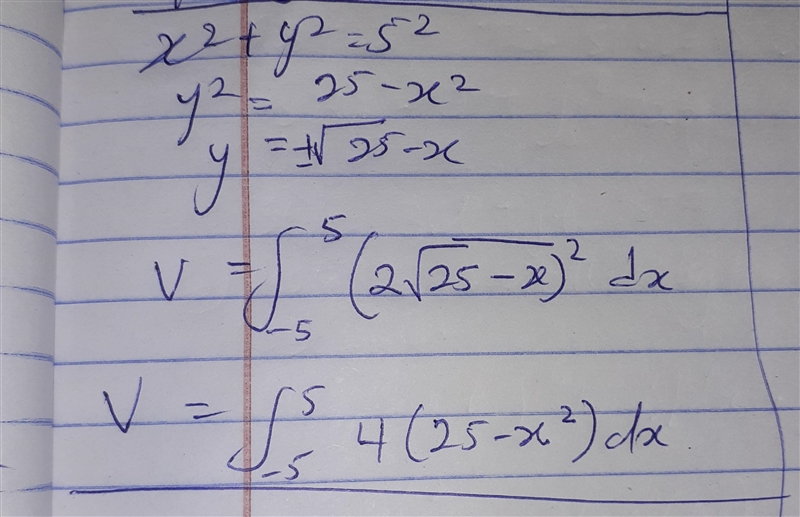 x² + y² = 5²
y² = 25 - x²
y = ±√25 - x
V = ∫₋₅⁵ (2√(25 - x))² dx
V = ∫₋₅⁵ 4(25 - x²) dx